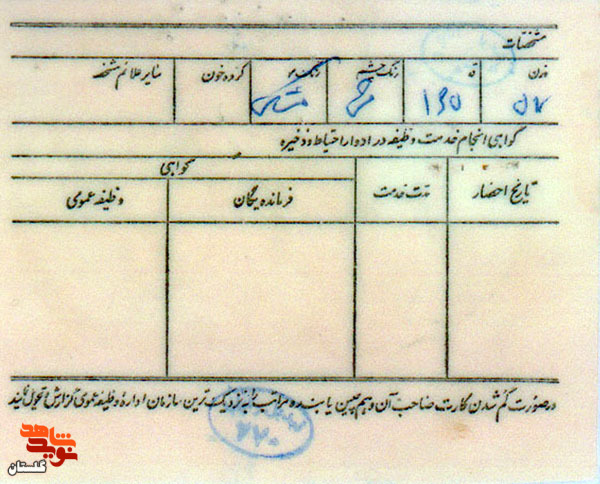 مشخصات
وزن قد رنگ چشم رنگ مو گروه خون سایر علائم مشخصه
۵۷ ۱۶۵ مشکی
گواهی انجام خدمت وظیفه در ادوار احتیاط و ذخیره
گواهی
تاریخ احضار مدت خدمت فرمانده یگان وظیفه عمومی
درصورت گم شدن کارت صاحب آن و همچنین یابنده مراتب را به نزدیک ترین سازمان اداره وظیفه عمومی گزارش و تحویل نمایند
۷۷۰
نوید شاهد
گلستان